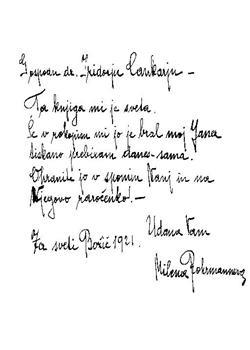 Gospodu dr. Izidorju Cankarju –
Ta knjiga mi je sveta.
Še v rokopisu mi jo je bral moj Jana
tiskano prebiram danes – sama.
Ohranite jo v spomin Nanj in na
Njegovo naročenko! –
Za sveti Božič 1921.
Udana Vam
Milena Rohrmannova